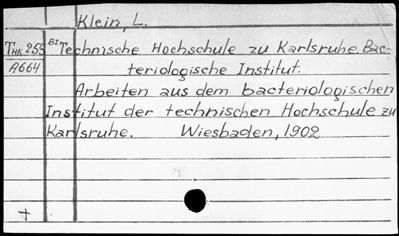 Klein, L.
THK 255 BI Technische Hochschule zu Karlsruhe. Bac-
A664 teriologische Institut.
Arbeiten aus dem bacteriologischen
Institut der technischen Hochschule zu
Karlsruhe. Wiesbaden, 1902
+